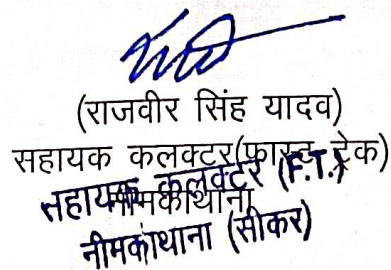 (राजवीर सिंह यादव)
सहायक कलक्टर(फास्ट ट्रेक)
नीमकाथाना
सहायक कलक्टर (F.T.)
नीमकाथाना (सीकर)